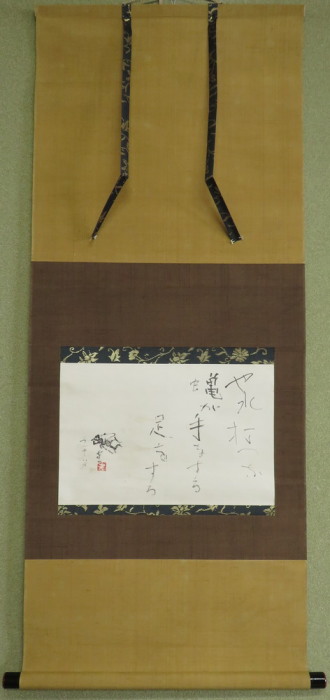 やれ打つな
蠅が手をする
足をする